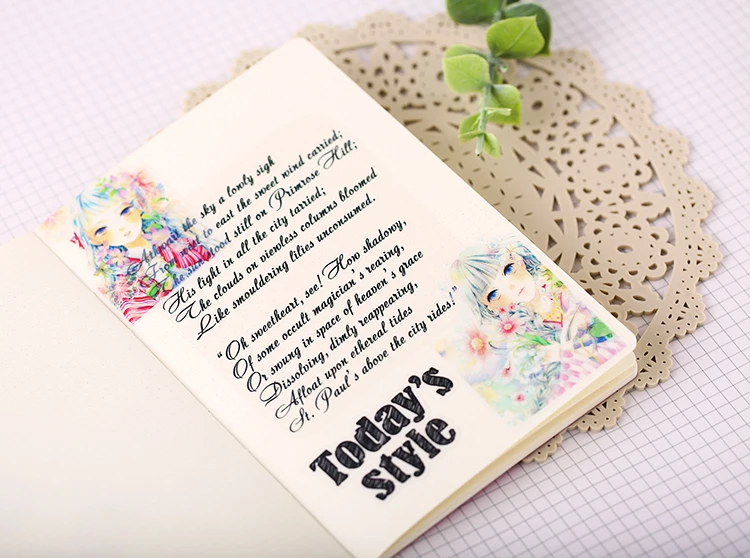 the sky a lowly sigh
to east the sweet wind carried;
stood still on Primrose Hill;
His light in all the city tarried;
The clouds on viewless columns bloomed
Like smouldering lilies unconsumed.
“Oh sweetheart, see! How shadowy,
Of some occult magician's rearing,
Or swung in space of heaven's grace
Dissolving, dimly reappearing,
Afloat upon ethereal tides
St. Paul's above the city rides!”
Today's
style